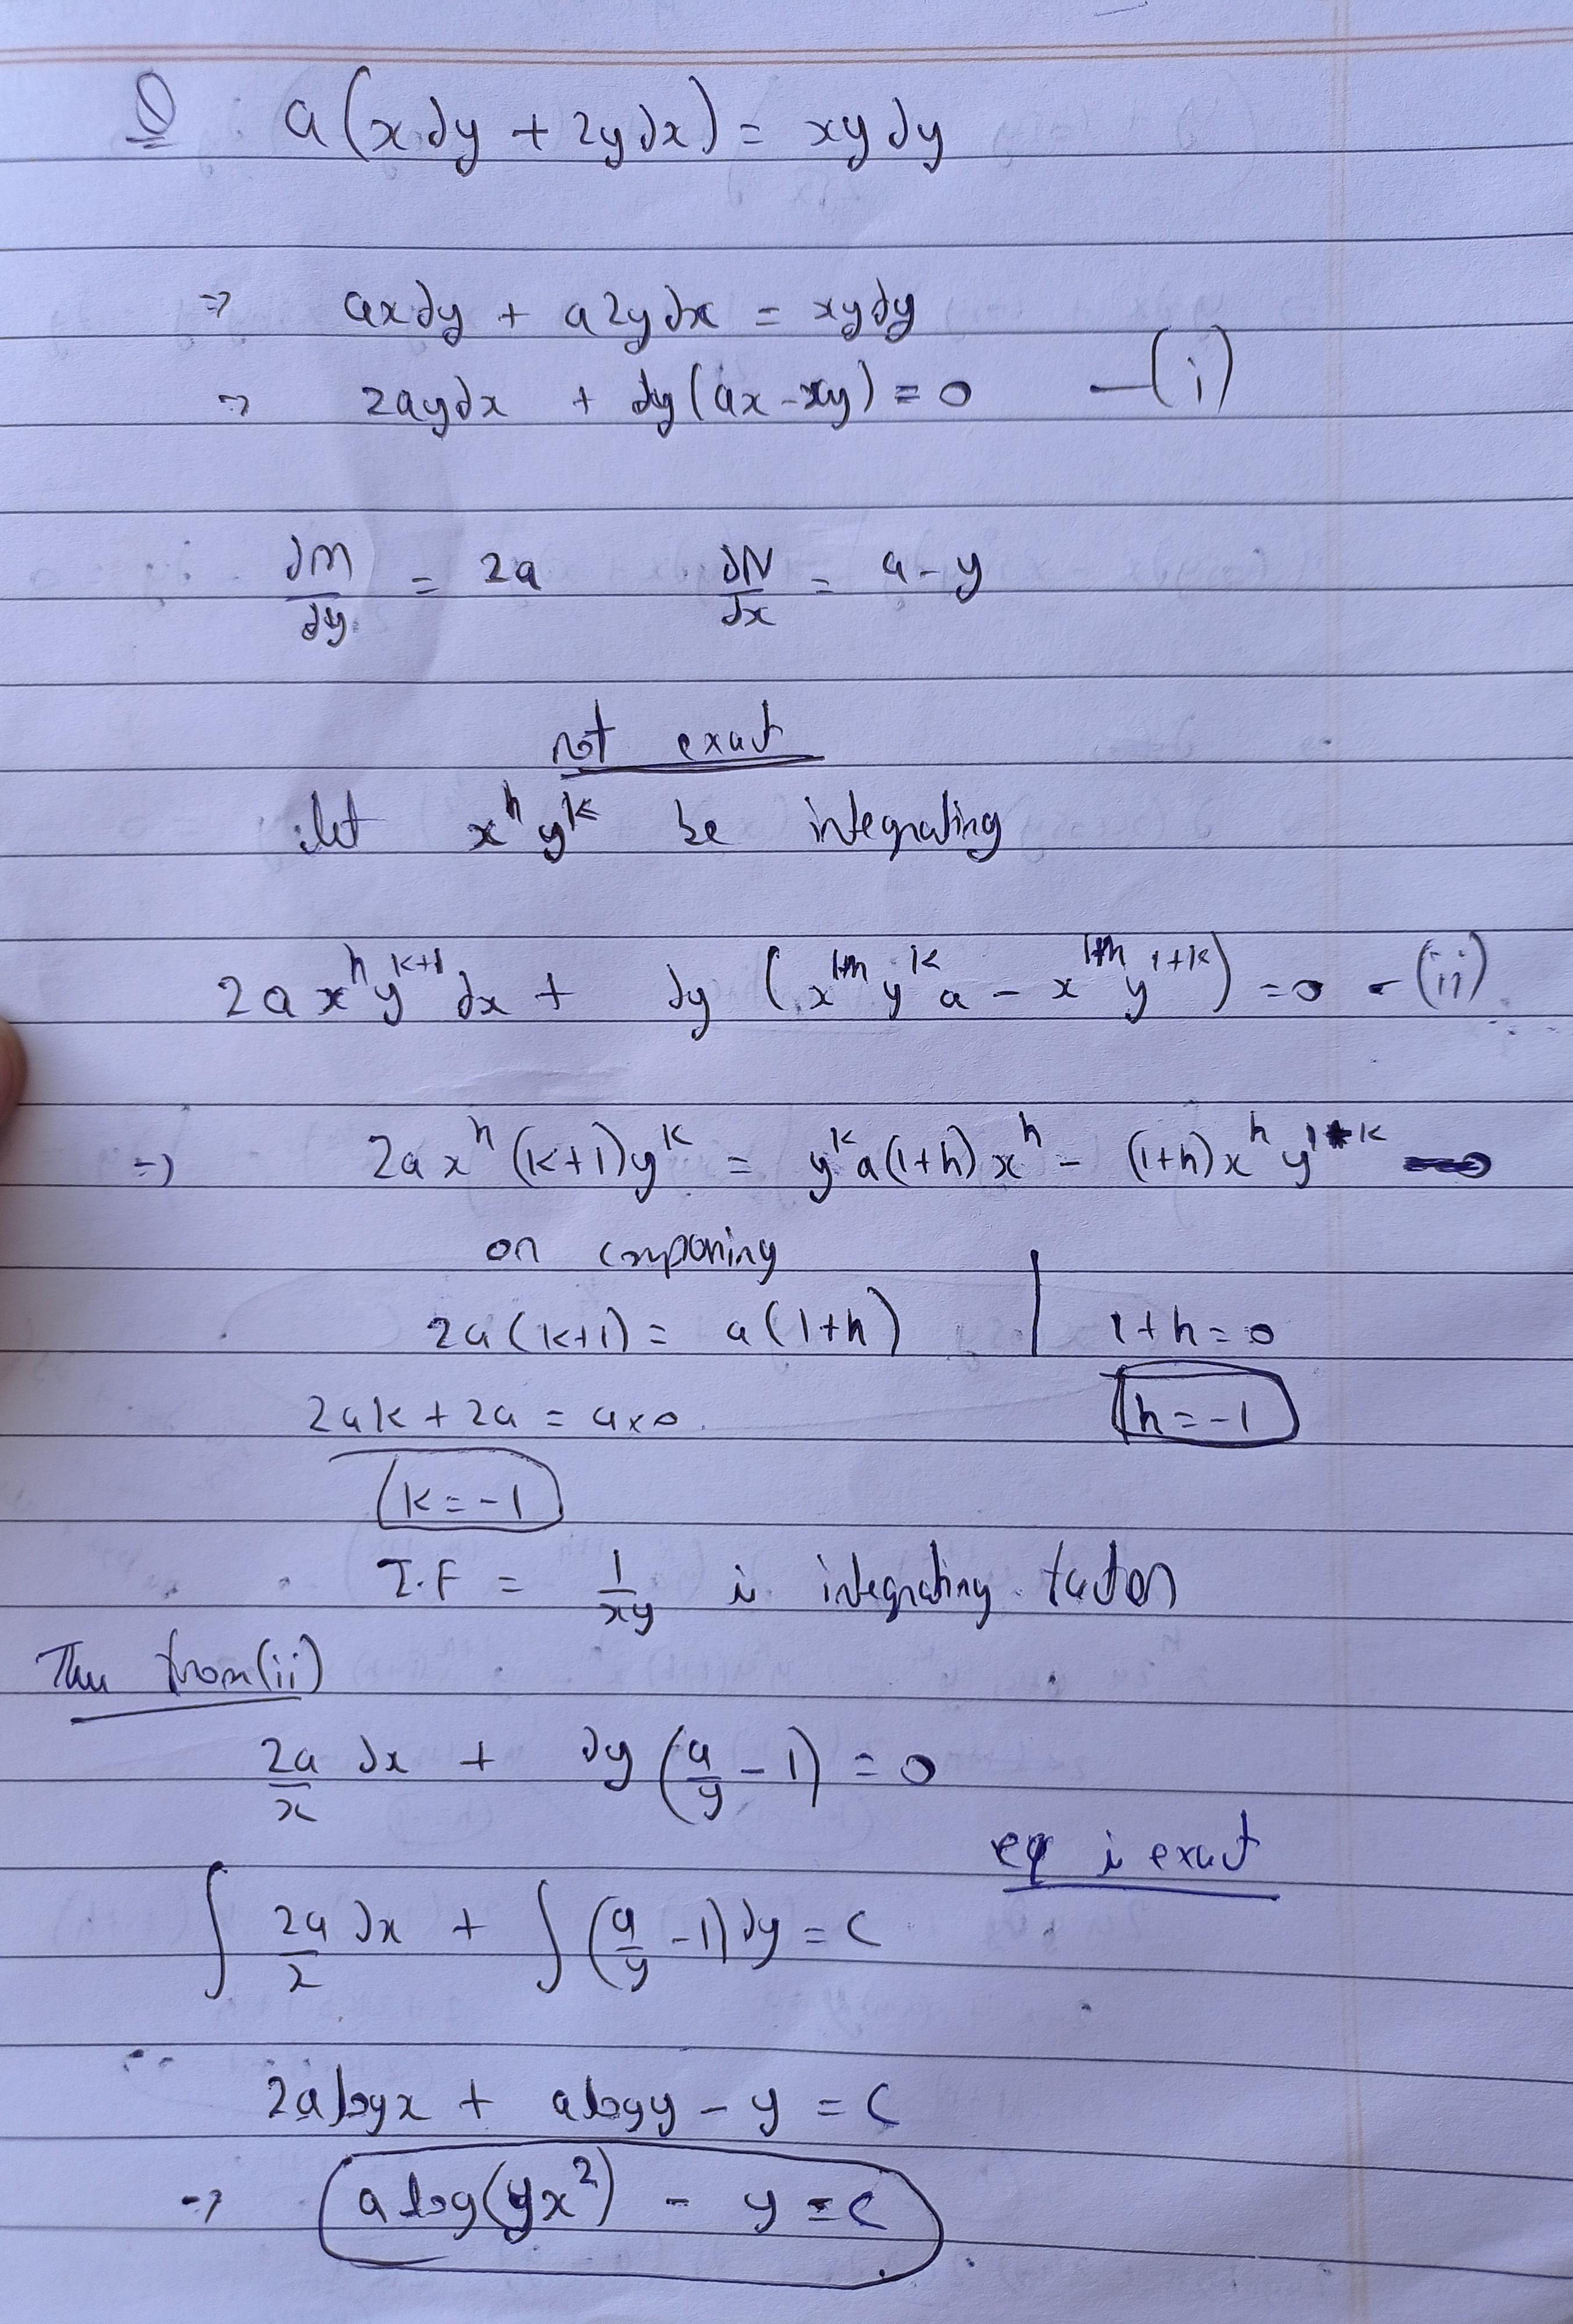 Q a(xdy + 2ydx) = xydy
⇒ axdy + a2ydx = xydy
⇒ 2aydx + dy(ax - xy) = 0 —(i)
∂M/∂y = 2a ∂N/∂x = a - y
not exact
let x^h y^k be integrating
2a x^h y^{k+1} dx + dy (x^{1+h} y^k a - x^{1+h} y^{1+k}) = 0 - (ii)
⇒ 2a x^h (k+1) y^k = y^k a(1+h) x^h - (1+h) x^h y^{1+k}
on comparing
2a(k+1) = a(1+h) | 1+h = 0
2ak + 2a = a×0. h = -1
k = -1
I.F = 1/xy is integrating factor
Thus from (ii)
2a/x dx + dy (a/y - 1) = 0
eq is exact
∫ 2a/x dx + ∫ (a/y - 1) dy = C
2a logx + a logy - y = C
⇒ a log(yx²) - y = C